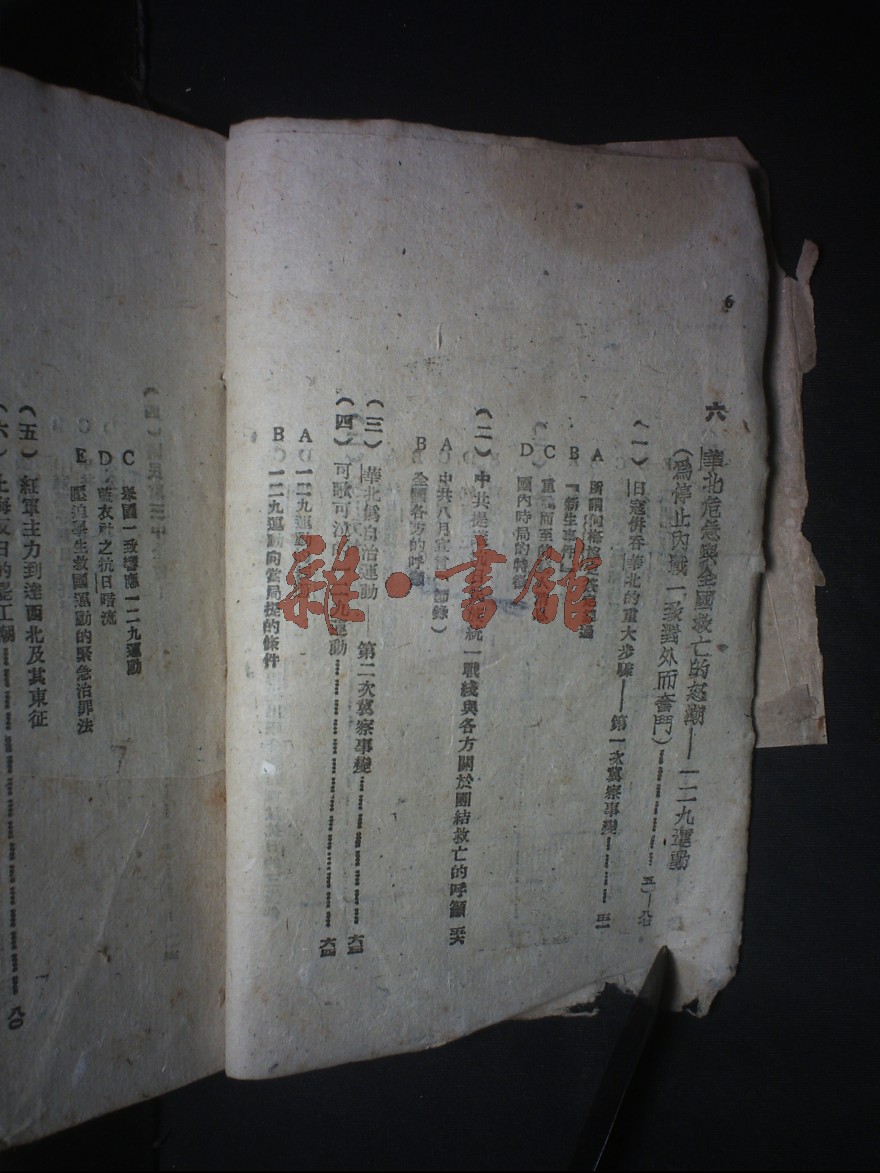 6
六 華北危急與全國救亡的怒潮——一二九運動
(為停止內戰一致對外而奮鬥)…………五一—八
(一)日寇併吞華北的重大步驟——第一次冀察事變
A 所謂何梅
B 「新生事件」
C 重 而至的
D 國內時局的特徵
(二)中共提 統一戰綫與各方關於團結救亡的呼籲 五六
A 中共八月宣言(節錄)
B 全國各方的呼籲
(三)華北偽自治運動——第二次冀察事變…………六四
(四)可歌可泣的一二九運動…………六四
A 一二九運動
B 一二九運動向當局提的條件
C 舉國一致響應一二九運動
D 藍衣社之抗日暗流
E 壓迫學生救國運動的緊急治罪法
(五)紅軍主力到達西北及其東征
(六)上海反日的罷工潮…………八〇
雜·書館